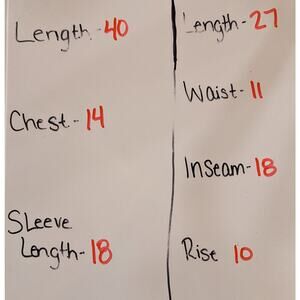 Length - 40
Chest - 14
Sleeve
Length - 18
Length - 27
Waist - 11
Inseam - 18
Rise 10